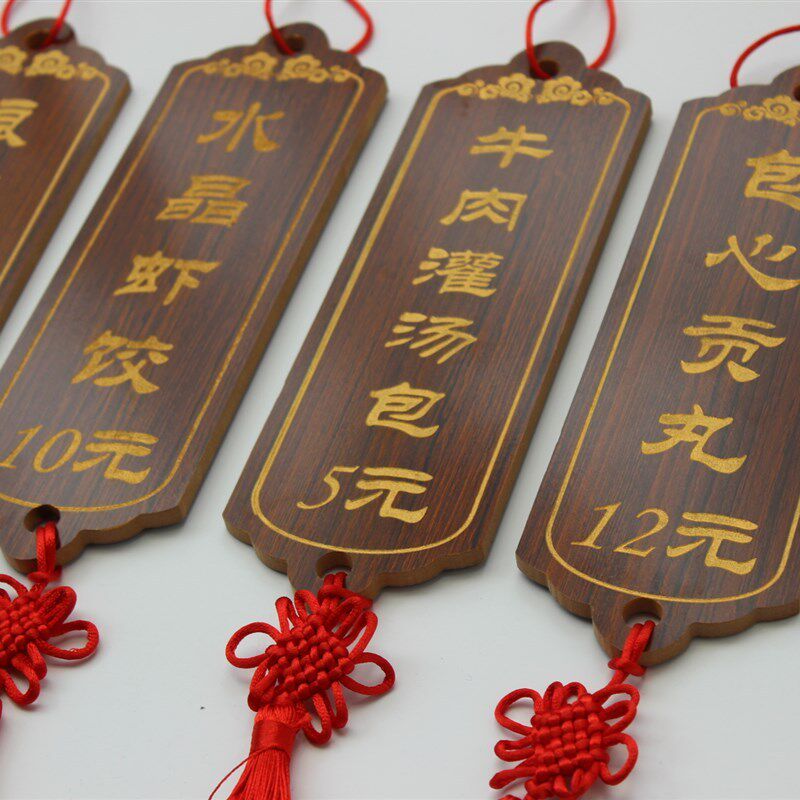 水晶虾饺
10元
牛肉灌汤包
5元
包心贡丸
12元